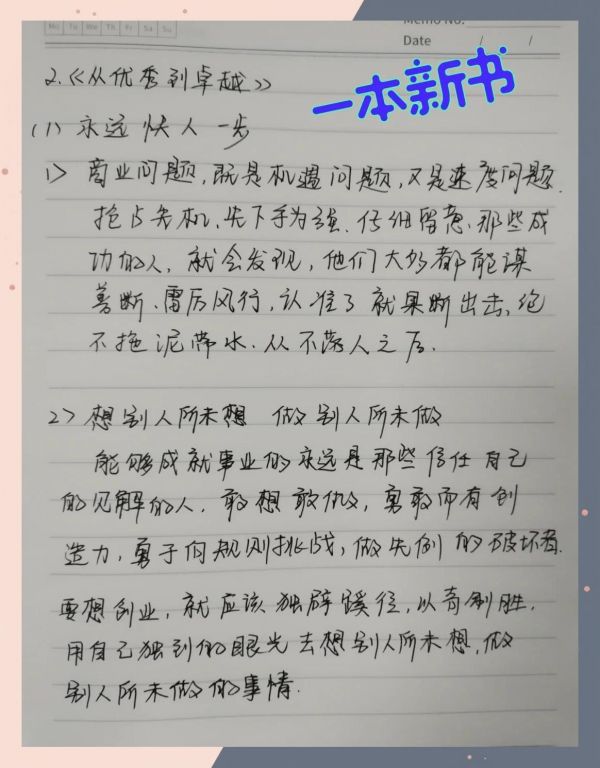 Mo Tu We Th Fr Sa Su
Memo No.
Date / /
一本新书
2.《从优秀到卓越》
(1) 永远快人一步
1> 商业问题,既是机遇问题,又是速度问题.
抢占先机,先下手为强.仔细留意,那些成
功的人,就会发现,他们大多都能谋
善断、雷厉风行,认准了就果断出击,绝
不拖泥带水.从不落人之后.
2> 想别人所未想 做别人所未做
能够成就事业的永远是那些信任自己
的见解的人,敢想敢做,勇敢而有创
造力,勇于向规则挑战,做先例的破坏者.
要想创业,就应该独辟蹊径,以奇制胜.
用自己独到的眼光去想别人所未想,做
别人所未做的事情.